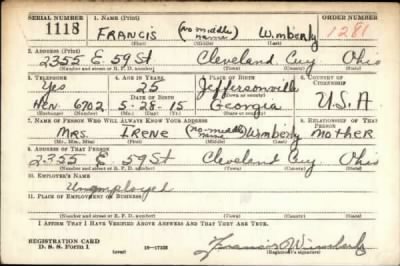 SERIAL NUMBER 1. NAME (Print) ORDER NUMBER
1118 FRANCIS (no middle name) Wimberly 1281
(First) (Middle) (Last)
2. ADDRESS (Print)
2355 E. 59 St Cleveland Cuy Ohio
(Number and street or R. F. D. number) (Town) (County) (State)
3. TELEPHONE 4. AGE IN YEARS 5. PLACE OF BIRTH 6. COUNTRY OF CITIZENSHIP
Yes 25 Jeffersonville
DATE OF BIRTH (Town or county)
Hen. 6702 5-28-15 Georgia U.S.A
(Exchange) (Number) (Mo.) (Day) (Yr.) (State or country)
7. NAME OF PERSON WHO WILL ALWAYS KNOW YOUR ADDRESS 8. RELATIONSHIP OF THAT PERSON
Mrs. IRENE (no middle name) Wimberly Mother
(Mr., Mrs., Miss) (First) (Middle) (Last)
9. ADDRESS OF THAT PERSON
2355 E. 59 St Cleveland Cuy Ohio
(Number and street or R. F. D. number) (Town) (County) (State)
10. EMPLOYER'S NAME
Unemployed
11. PLACE OF EMPLOYMENT OR BUSINESS
(Number and street or R. F. D. number) (Town) (County) (State)
I AFFIRM THAT I HAVE VERIFIED ABOVE ANSWERS AND THAT THEY ARE TRUE.
REGISTRATION CARD
D. S. S. Form 1 (over) 16-17105 Francis Wimberly
(Registrant's signature)